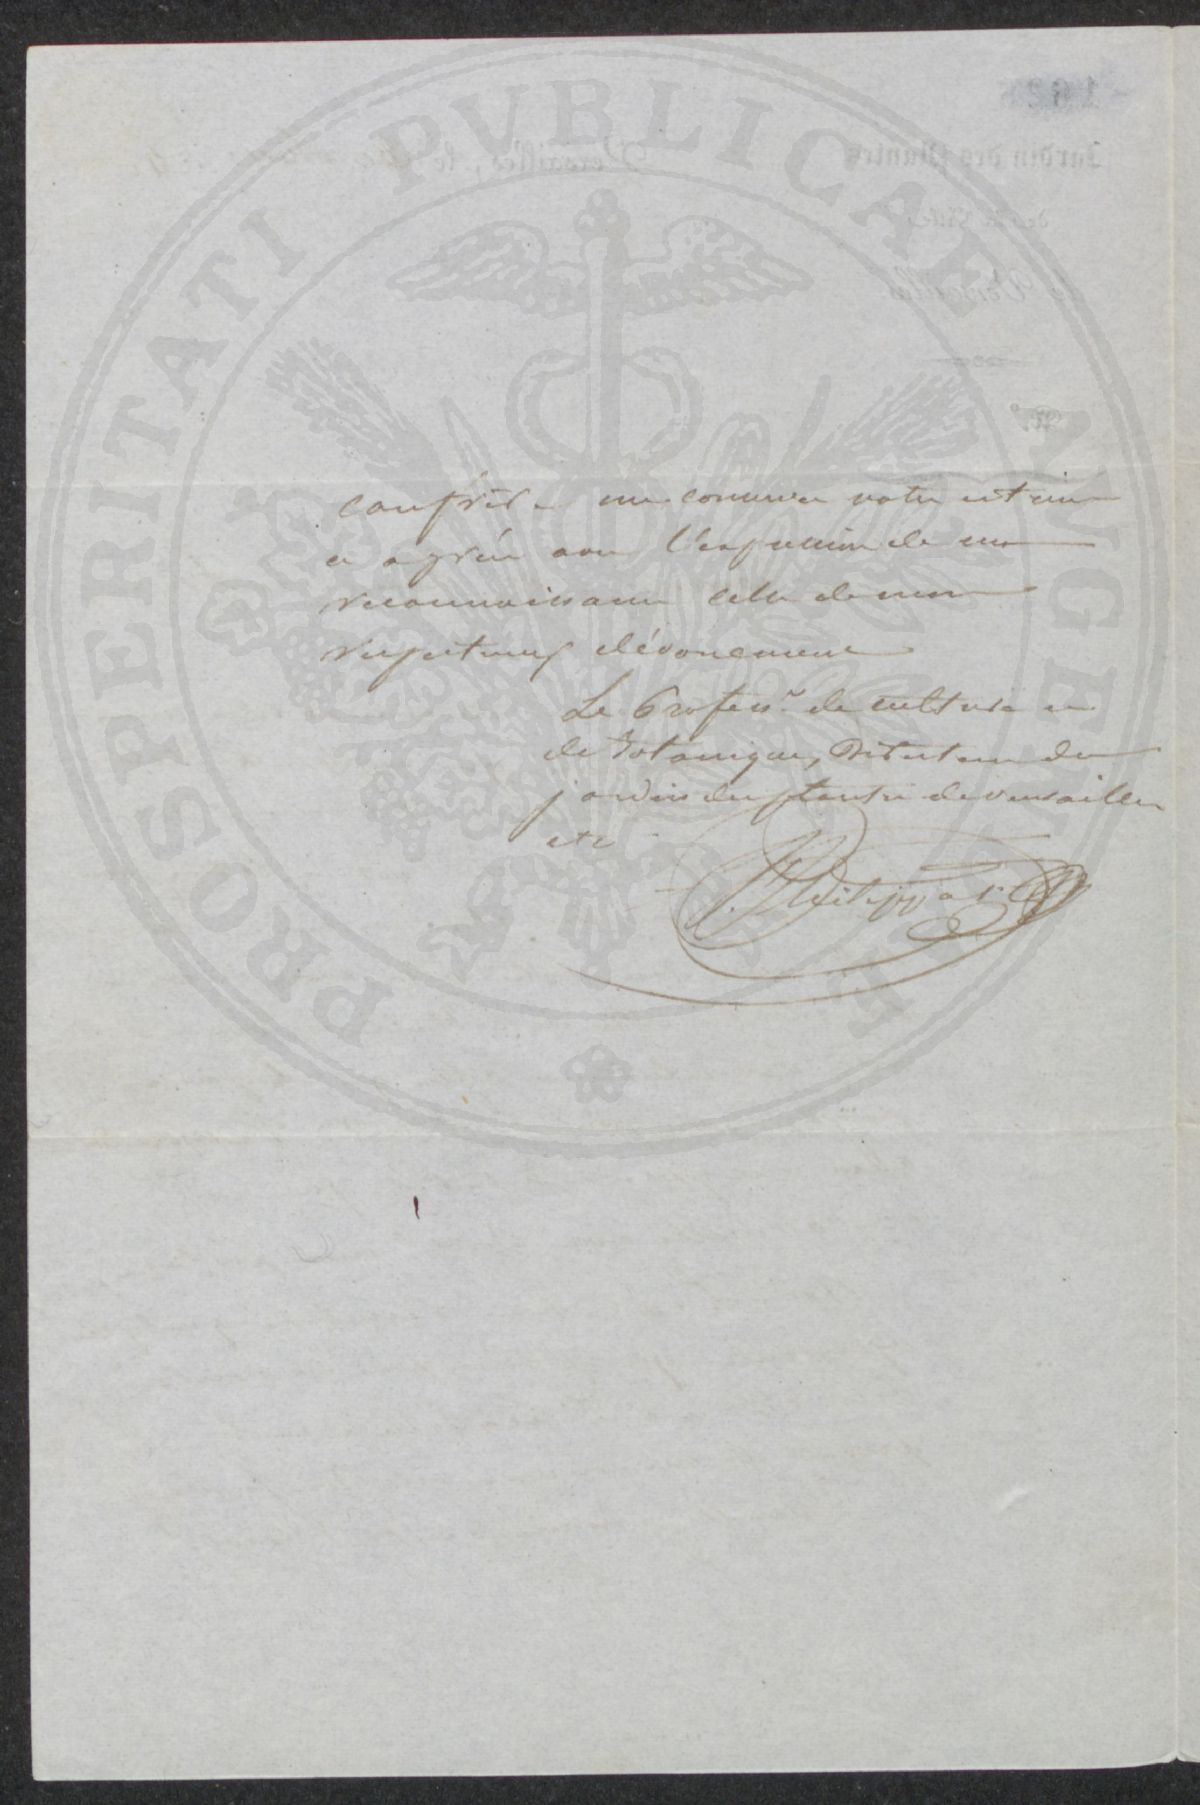 PROSPERITATI PUBLICAE AUGENDAE
confrère me conserver votre estime
et agréer avec l'expression de ma
reconnoissance celle de mon
respectueux dévouement
Le Profess.r de culture et
de Botanique, Directeur du
jardin des plantes de Versailles
etc
Philippar